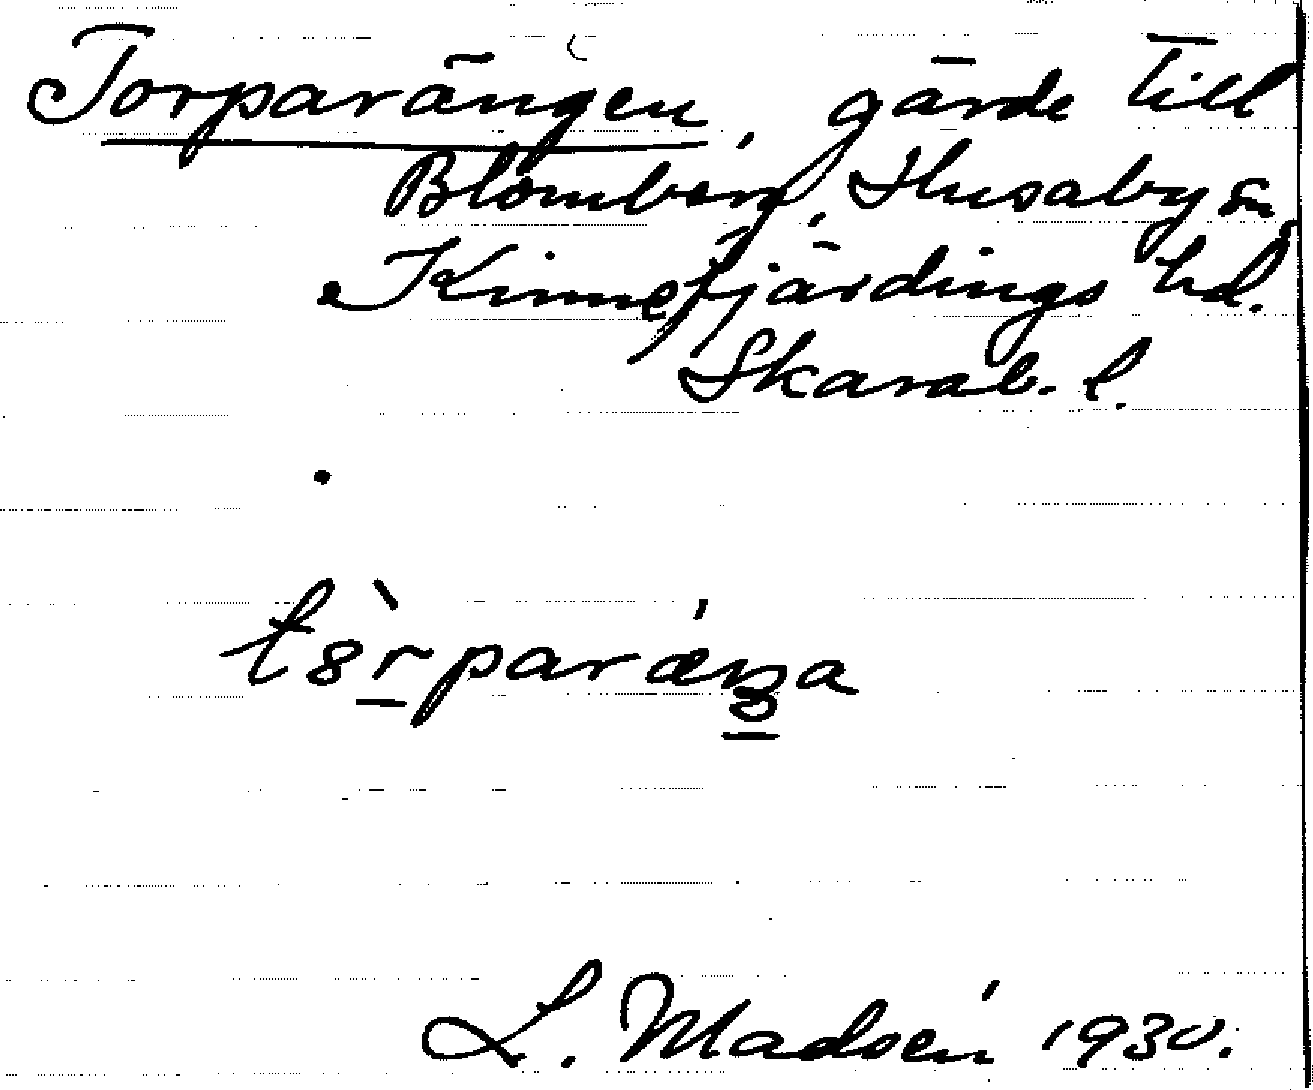 Torparängen, gärde till
Blomberg, Husaby sn,
Kinnefjärdings hd.
Skarab. l.
L. Madsén 1930.